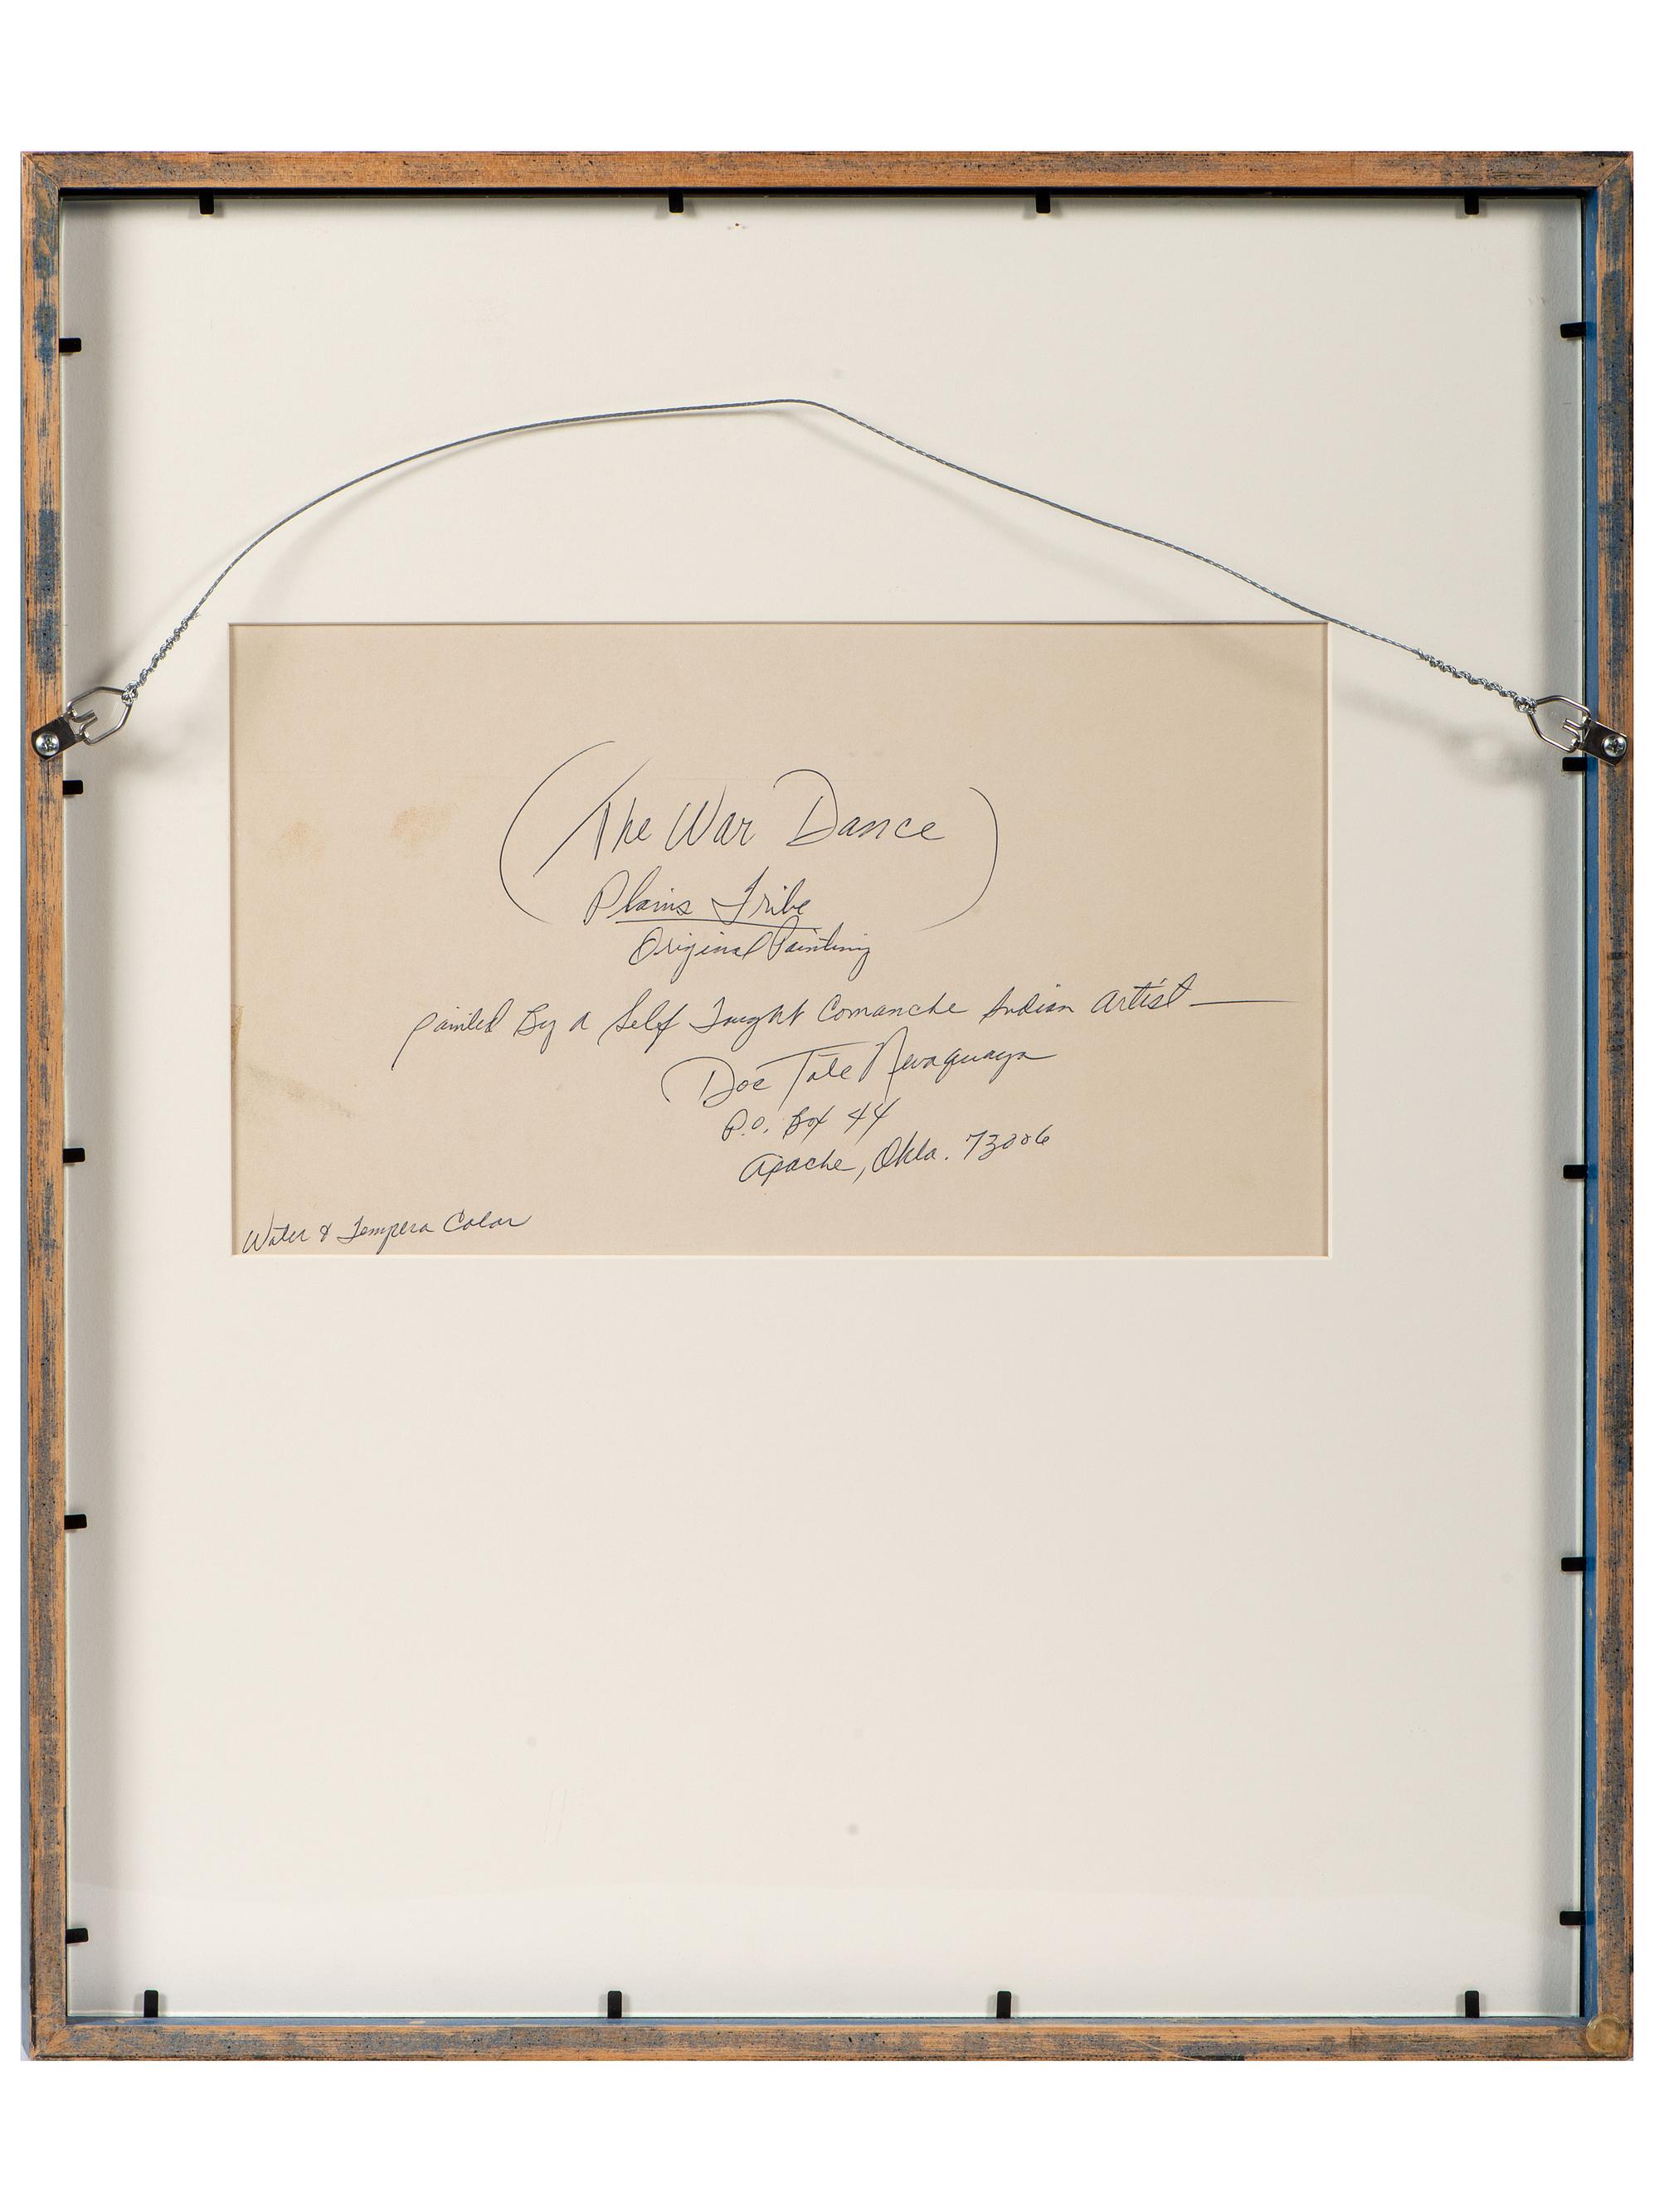 (The War Dance)
Plains Tribe
Original Painting
Painted By a Self Taught Comanche Indian Artist—
Doc Tate Nevaquaya
P.O. Box 44
Apache, Okla. 73006
Water & Tempera Color